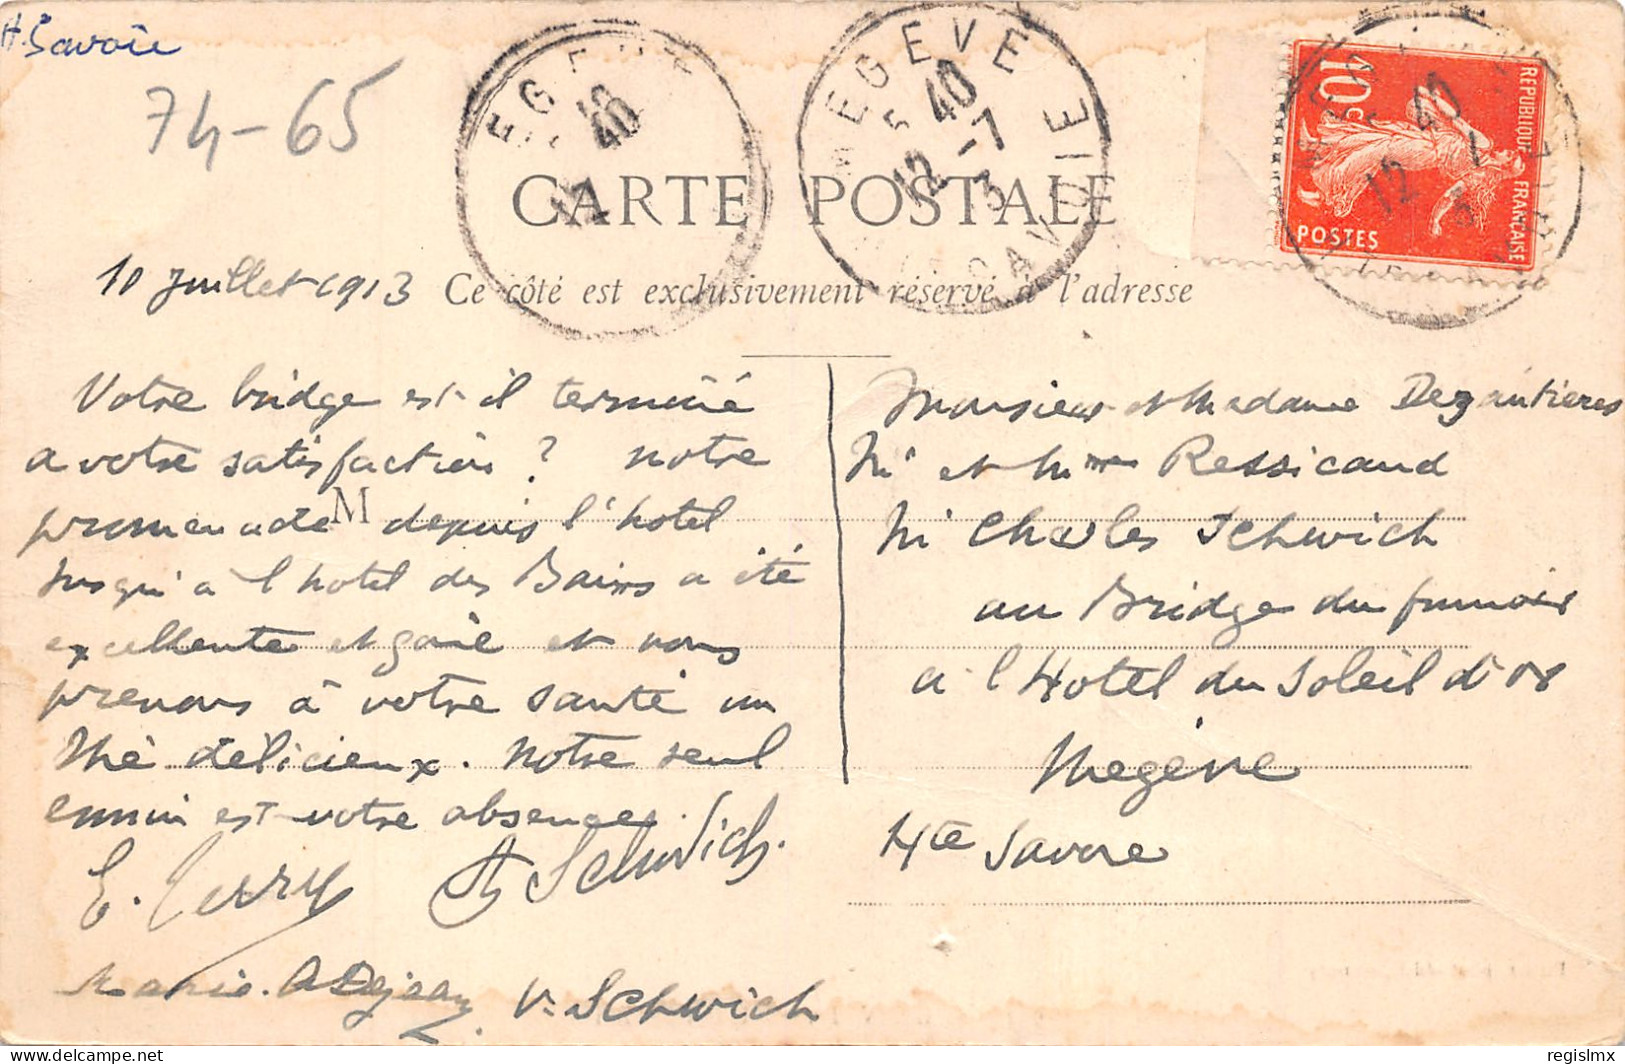 H. Savoie
74-65
MEGEVE
5 40
12-7
13
SAVOIE
10c
REPUBLIQUE FRANÇAISE
POSTES
CARTE POSTALE
10 Juillet 1913
Ce côté est exclusivement réservé à l'adresse
Votre bridge est-il terminé
a votre satisfaction ? Notre
promenade depuis l'hotel
jusqu'à l'hotel des Bains a été
excellente et gaie et nous
prenons à votre santé un
thé délicieux. Notre seul
ennui est votre absence.
E. Perry
Schwich.
Marie. Dejean
V. Schwich
M
Monsieur et Madame Dezautieres
Mr et Mme Ressicaud
Mr Charles Schwich
au Bridge du fumoir
à l'Hotel du Soleil d'or
Megève
Hte Savoie
delcampe.net
regislmx